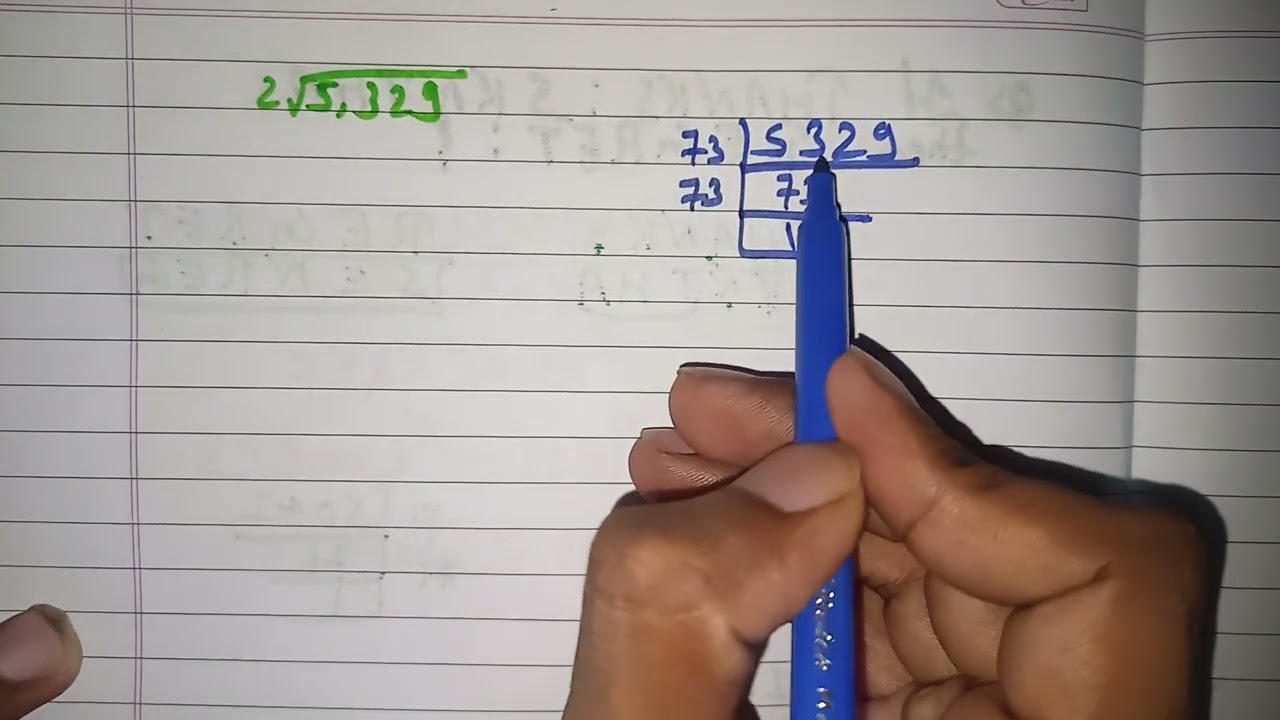 2√5,329
73 | 5329
73 | 7
1